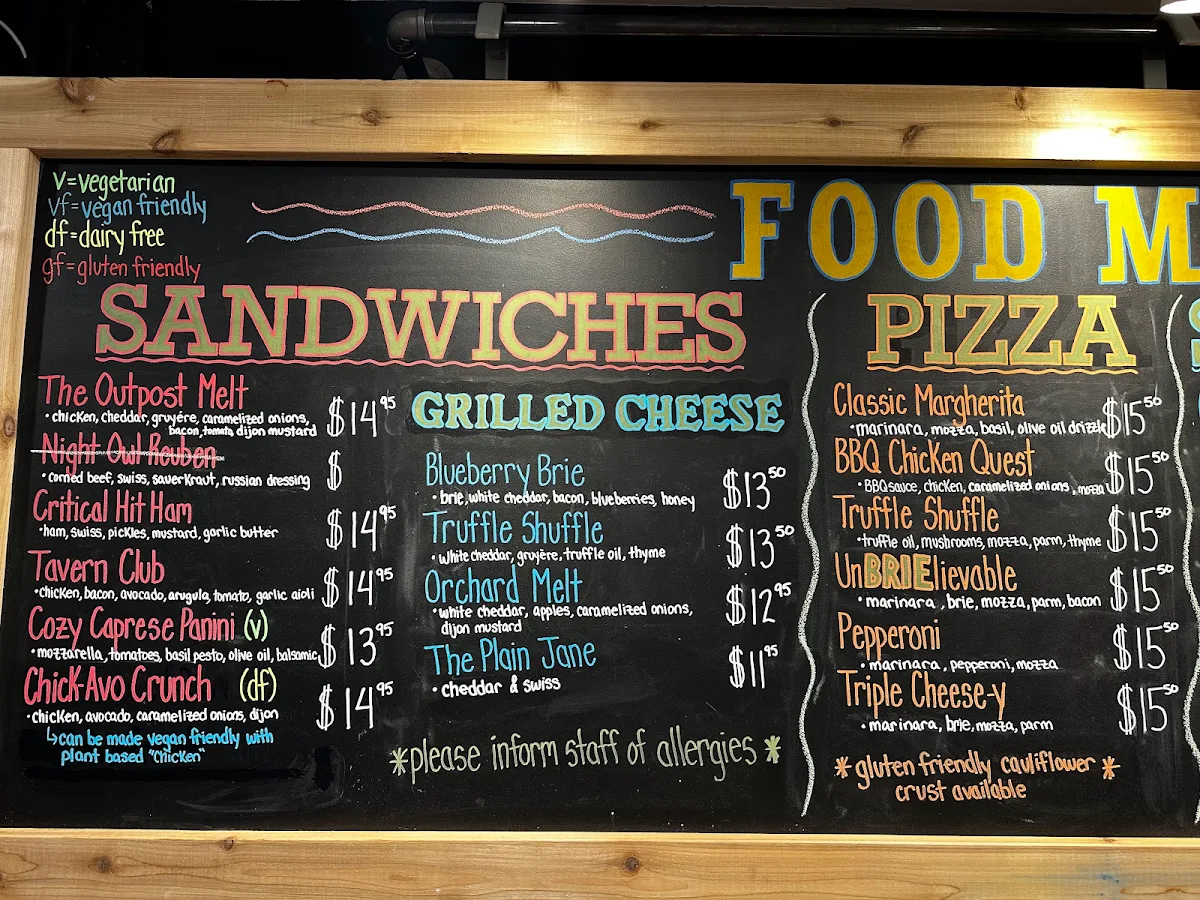 v=vegetarian
vf=vegan friendly
df=dairy free
gf=gluten friendly
FOOD M
SANDWICHES
The Outpost Melt $14.95
•chicken, cheddar, gruyére, caramelized onions,
bacon, tomato, dijon mustard
Night Owl Reuben $
•corned beef, swiss, sauerkraut, russian dressing
Critical Hit Ham $14.95
•ham, swiss, pickles, mustard, garlic butter
Tavern Club $14.95
•chicken, bacon, avocado, arugula, tomato, garlic aioli
Cozy Caprese Panini (v) $13.95
•mozzarella, tomatoes, basil pesto, olive oil, balsamic
Chick-Avo Crunch (df) $14.95
•chicken, avocado, caramelized onions, dijon
↳can be made vegan friendly with
plant based "chicken"
GRILLED CHEESE
Blueberry Brie $13.50
•brie, white cheddar, bacon, blueberries, honey
Truffle Shuffle $13.50
•white cheddar, gruyère, truffle oil, thyme
Orchard Melt $12.95
•white cheddar, apples, caramelized onions,
dijon mustard
The Plain Jane $11.95
•cheddar & swiss
*please inform staff of allergies*
PIZZA
Classic Margherita $15.50
•marinara, mozza, basil, olive oil drizzle
BBQ Chicken Quest $15.50
•BBQ sauce, chicken, caramelized onions, mozza
Truffle Shuffle $15.50
•truffle oil, mushrooms, mozza, parm, thyme
UnBRIElievable $15.50
•marinara, brie, mozza, parm, bacon
Pepperoni $15.50
•marinara, pepperoni, mozza
Triple Cheese-y $15.50
•marinara, brie, mozza, parm
*gluten friendly cauliflower*
crust available